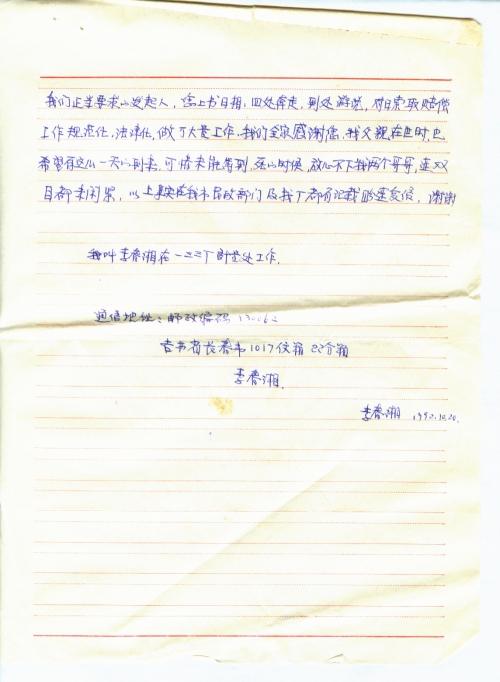 我们正当要求的发起人，您上书日相，四处奔走，到处游说，对日索取赔偿
工作规范化，法律化，做了大量工作，我们全家感谢您，我父亲在世时，也
希望有这么一天的到来，可惜未能等到，死的时候，放心不下我两个哥哥，连双
目都未闭紧，以上事实在我本民政部门及我厂都有记载的连复信，谢谢
我叫李春湘在一二三厂附营处工作。
通信地址：邮政编码 130062
吉林省长春市1017信箱 22分箱
李春湘.
李春湘 1992.10.20.